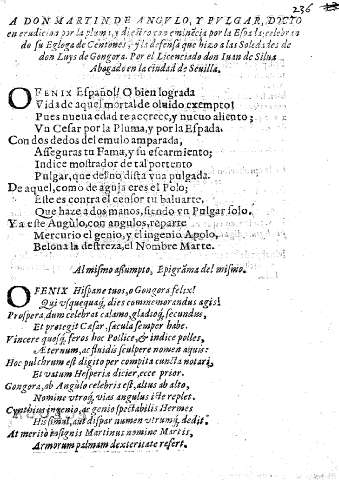 236
A DON MARTIN DE ANGVLO, Y PVLGAR, DICTO
en erudicion por la pluma, y diestro con eminẽcia por la Espada celebrando
su Egloga de Centones, y la defensa que hizo a las Soledades de
don Luys de Gongora. Por el Licenciado don Iuan de Silua
Abogado en la ciudad de Seuilla.
O FENIX Español! O bien lograda
Vida de aquel mortal de oluido exempto!
Pues nueua edad te accrece, y nueuo aliento;
Vn Cesar por la Pluma, y por la Espada.
Con dos dedos del emulo amparada,
Asseguras tu Fama, y su escarmiento;
Indice mostrador de tal portento
Pulgar, que desno dista vna pulgada.
De aquel, como de aguja eres el Polo;
Este es contra el censor tu baluarte,
Que haze a dos manos, siendo vn Pulgar solo.
Y a este Angulo, con angulos, reparte
Mercurio el genio, y el ingenio Apolo,
Belona la destreza, el Nombre Marte.
Al mismo assumpto, Epigrãma del mismo.
O FENIX Hispane tuos, o Gongora felix!
Qui vsquequaq; dies commemorandus agis!
Prospera, dum celebrat calamo, gladioq; secundus,
Et protegit Cæsar, sæcula semper habe.
Vincere quosq; feros hoc Pollice, & indice polles,
Æternum, ac fidis sculpere nomen aquis:
Hoc pulchrum est digito per compita cuncta notari,
Et vatum Hesperia dicier, ecce prior.
Gongora, ab Angulo celebris est, altus ab alto,
Nomine vtroq; vias angulus iste replet.
Cynthius ingenio, ac genio spectabilis Hermes
His simul, aut dispar numen vtrumq; dedit.
At merito insignis Martinus nomine Martis,
Armorum palmam dexteritate refert.